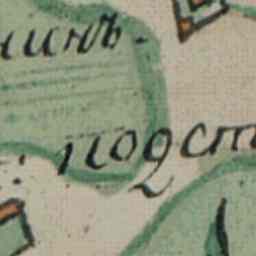 чинъ.
подст